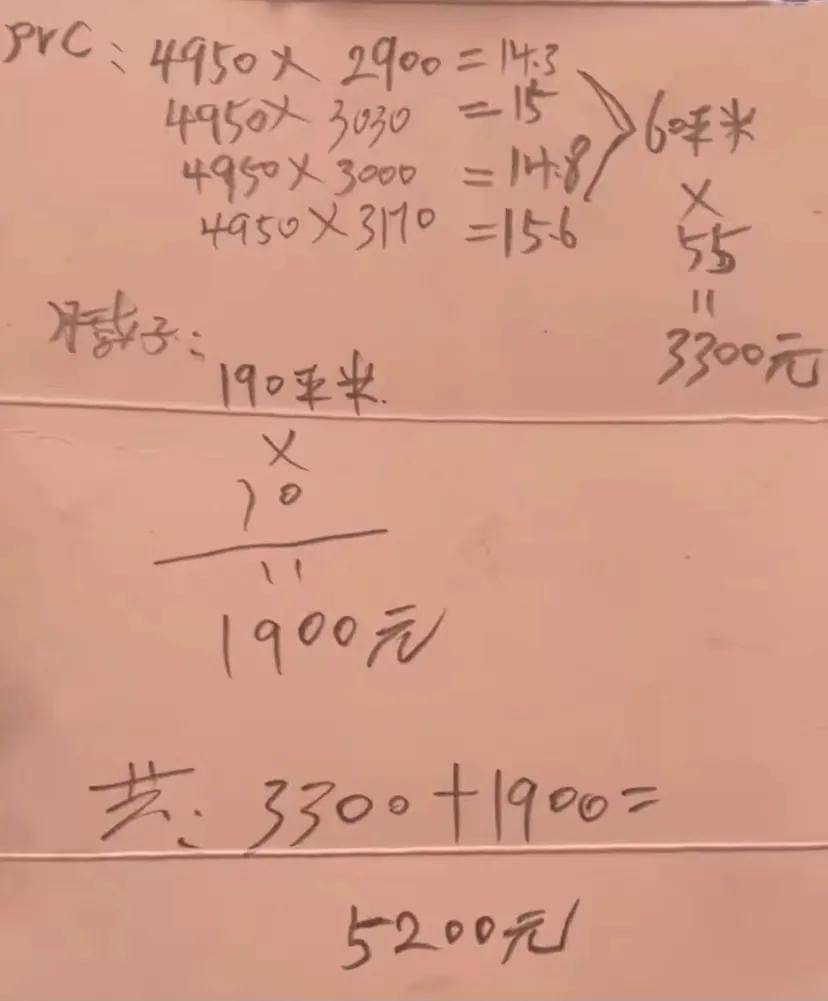 PVC：4950×2900=14.3
4950×3030=15
4950×3000=14.8
4950×3170=15.6
60平米
×
55
=
3300元
子：
190平米.
×
10
=
1900元
共：3300+1900=
5200元